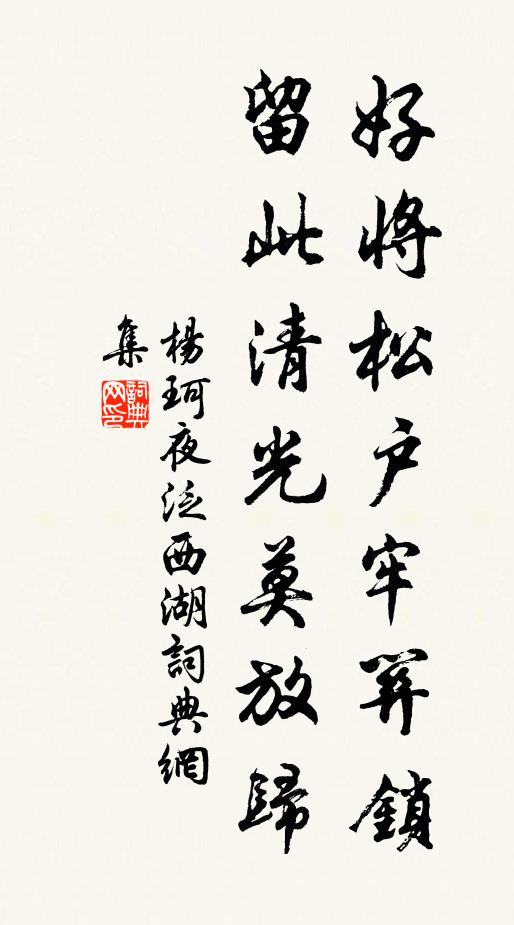 好將松戶牢關鎖
留此清光莫放歸
楊珂夜泛西湖詞典網
集
詞典网印